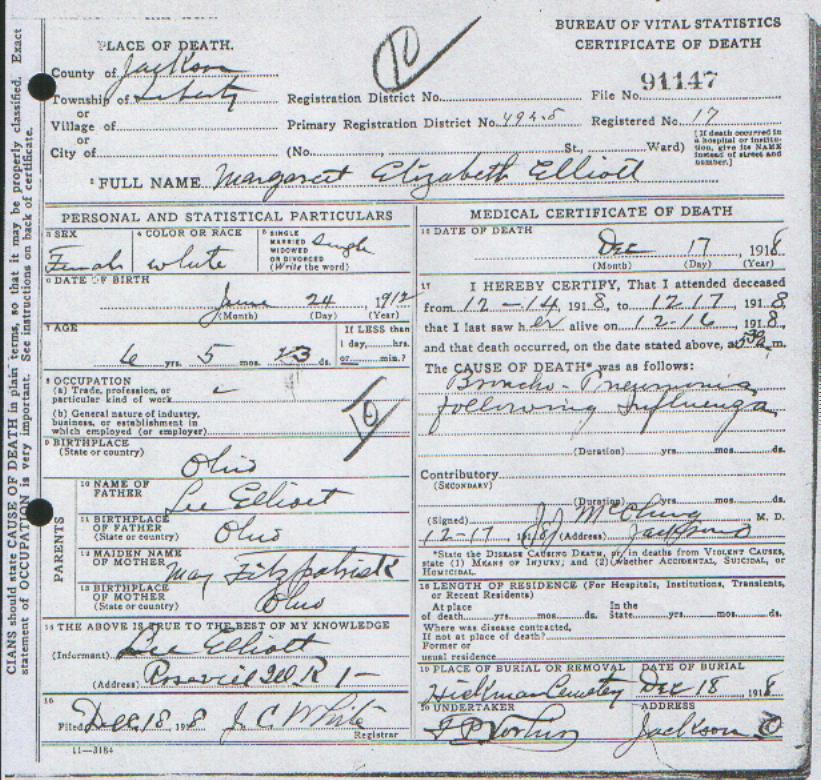 BUREAU OF VITAL STATISTICS
CERTIFICATE OF DEATH
PLACE OF DEATH.
County of Jackson
Township of Liberty
or
Village of
or
City of
Registration District No.
File No. 91147
Primary Registration District No. 4925
Registered No. 17
(No. St., Ward)
[If death occurred in a hospital or institution, give its NAME instead of street and number.]
2 FULL NAME Margaret Elizabeth Elliott
PERSONAL AND STATISTICAL PARTICULARS
3 SEX
Female
4 COLOR OR RACE
white
5 SINGLE
MARRIED
WIDOWED
OR DIVORCED
(Write the word)
Single
6 DATE OF BIRTH
24, 1912
(Month) (Day) (Year)
7 AGE
6 yrs. 5 mos. 23 ds.
If LESS than
1 day, hrs.
or min.?
8 OCCUPATION
(a) Trade, profession, or
particular kind of work
(b) General nature of industry,
business, or establishment in
which employed (or employer)
10
9 BIRTHPLACE
(State or country)
Ohio
PARENTS
10 NAME OF
FATHER
Lee Elliott
11 BIRTHPLACE
OF FATHER
(State or country)
Ohio
12 MAIDEN NAME
OF MOTHER
May Fitzpatrick
13 BIRTHPLACE
OF MOTHER
(State or country)
Ohio
14 THE ABOVE IS TRUE TO THE BEST OF MY KNOWLEDGE
(Informant) Lee Elliott
(Address) Ill. R 1
15
Filed Dec. 18 1918 J. C. White
Registrar
11—3184
MEDICAL CERTIFICATE OF DEATH
16 DATE OF DEATH
Dec 17, 1918
(Month) (Day) (Year)
17 I HEREBY CERTIFY, That I attended deceased
from 12-14, 1918, to 12 17, 1918,
that I last saw her alive on 12-16, 1918,
and that death occurred, on the date stated above, at m.
The CAUSE OF DEATH* was as follows:
Broncho-Pneumonia
following Influenza
(Duration) yrs. mos. ds.
Contributory
(SECONDARY)
(Duration) yrs. mos. ds.
(Signed) J. J. McClung M. D.
12-17, 1918 (Address) Jackson O
*State the DISEASE CAUSING DEATH, or, in deaths from VIOLENT CAUSES,
state (1) MEANS OF INJURY; and (2) whether ACCIDENTAL, SUICIDAL, or
HOMICIDAL.
18 LENGTH OF RESIDENCE (For Hospitals, Institutions, Transients,
or Recent Residents)
At place
of death yrs. mos. ds.
In the
State yrs. mos. ds.
Where was disease contracted,
If not at place of death?
Former or
usual residence
19 PLACE OF BURIAL OR REMOVAL
Hickman Cemetery
DATE OF BURIAL
Dec 18, 1918
20 UNDERTAKER
ADDRESS
Jackson O
CIANS should state CAUSE OF DEATH in plain terms, so that it may be properly classified. Exact
statement of OCCUPATION is very important. See instructions on back of certificate.